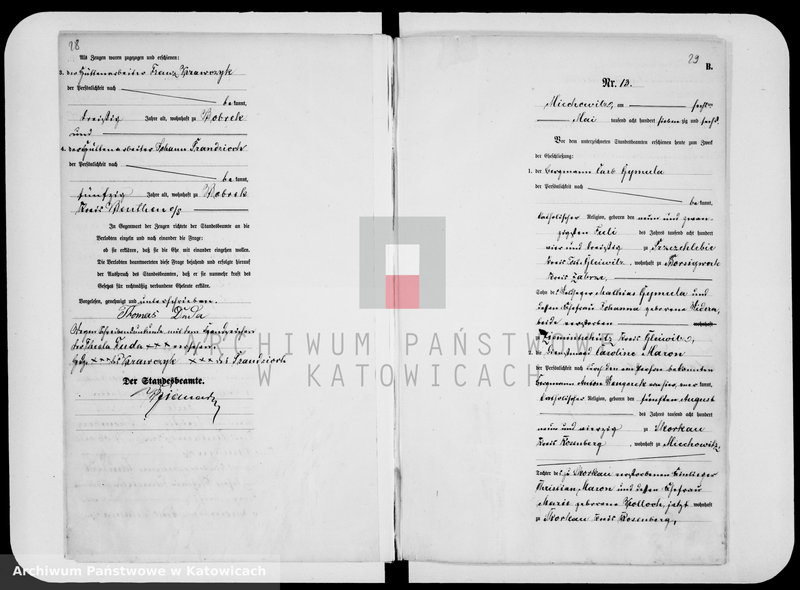 28
Als Zeugen waren zugezogen und erschienen:
3. der Hüttenarbeiter Franz Krawczyk
der Persönlichkeit nach
be kannt,
dreißig Jahre alt, wohnhaft zu Bobrek
und
4. der Hüttenarbeiter Johann
der Persönlichkeit nach
be kannt,
fünfzig Jahre alt, wohnhaft zu Bobrek
Kreis Beuthen o/s
In Gegenwart der Zeugen richtete der Standesbeamte an die
Verlobten einzeln und nach einander die Frage:
ob sie erklären, daß sie die Ehe mit einander eingehen wollen.
Die Verlobten beantworteten diese Frage bejahend und erfolgte hierauf
der Ausspruch des Standesbeamten, daß er sie nunmehr kraft des
Gesetzes für rechtmäßig verbundene Eheleute erkläre.
Vorgelesen, genehmigt und unterschrieben.
Thomas Duda
Wegen Schreibensunkunde mit dem Handzeichen
Duda +++ versehen
+++ des Krawczyk +++ des
Der Standesbeamte.
29
B.
Nr. 13.
Miechowitz, am sechsten
Mai tausend acht hundert siebenzig und sechs
Vor dem unterzeichneten Standesbeamten erschienen heute zum Zweck
der Eheschließung:
1. der Bergmann Carl Hymula
der Persönlichkeit nach
be kannt,
katholischer Religion, geboren den neun und zwan-
zigsten Juli des Jahres tausend acht hundert
vier und dreißig zu
Kreis Tost Gleiwitz, wohnhaft zu Borsigwerk
Kreis Zabrze,
Sohn des Mathias Hymula und
dessen Ehefrau Johanna geborene
beide verstorben wohnhaft
zu Kreis Gleiwitz,
2. die Dienstmagd Caroline Maron
der Persönlichkeit nach durch den von Person bekannten
Bergmann Anton von hier, aner kannt,
katholischer Religion, geboren den fünften August
des Jahres tausend acht hundert
neun und vierzig zu Skorkau
Kreis Rosenberg, wohnhaft zu Miechowitz,
Tochter des zu Skorkau verstorbenen Einlieger
Christian Maron und dessen Ehefrau
Marie geborene jetzt wohnhaft
zu Skorkau Kreis Rosenberg,
ARCHIWUM PAŃSTWOWE
W KATOWICACH
Archiwum Państwowe w Katowicach